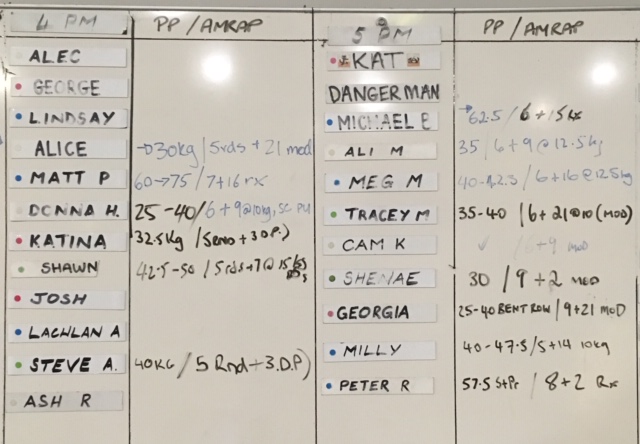 4 PM PP / AMRAP
ALEC
GEORGE
LINDSAY
ALICE →30kg / 5rds + 21 mod
MATT P 60→75 / 7+16 rx
DONNA H. 25-40 / 6 + 9@10kg, SC PU
KATINA 32.5kg / 5 + 3 D.P.)
SHAWN 42.5-50 / 5rds+7@15kg
JOSH
LACHLAN A
STEVE A. 40KG / 5 Rnd + 3.D.P)
ASH R
5 PM PP / AMRAP
KAT
DANGERMAN
MICHAEL B →62.5 / 6+15 rx
ALI M 35 / 6+9@12.5kg
MEG M 40-42.5 / 6+16@12.5kg
TRACEY M 35-40 / 6+21@10 (MOD)
CAM K ✓ / 6+9 MOD
SHENAE 30 / 9+2 MOD
GEORGIA 25-40 BENT ROW / 9+21 MOD
MILLY 40-47.5 / 5+14 10kg
PETER R 57.5 StPr / 8+2 Rx